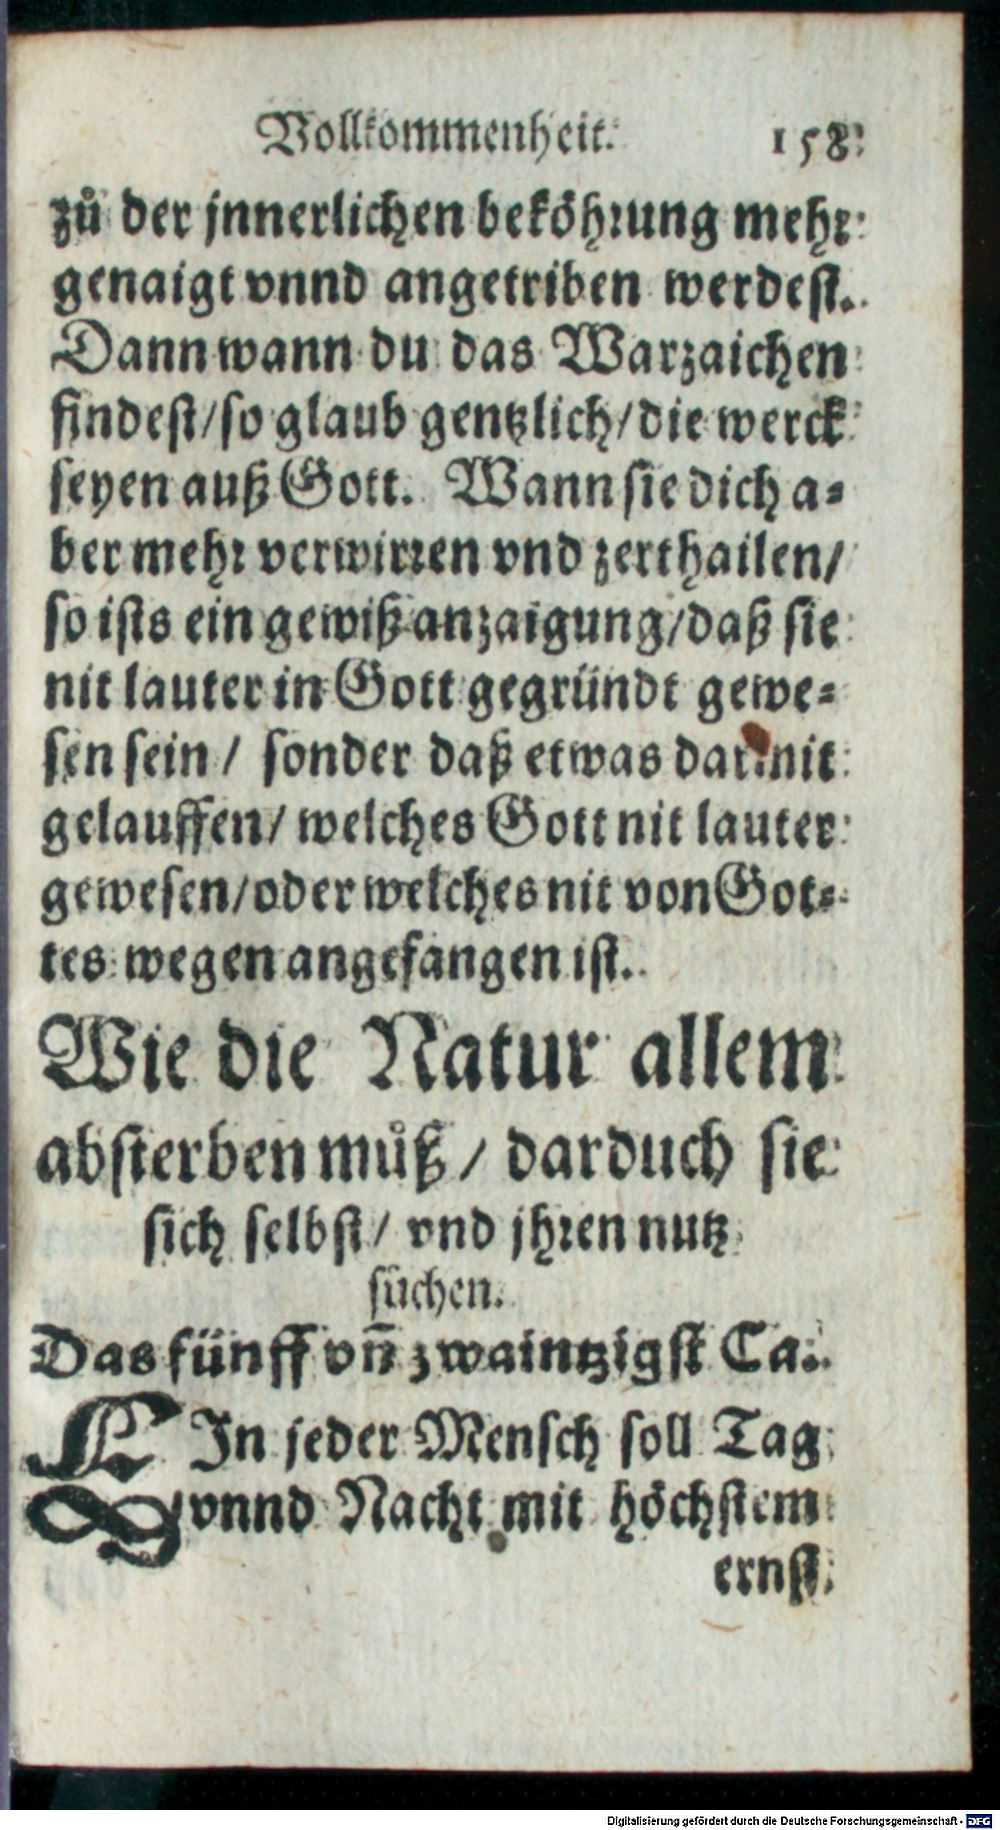 Vollkommenheit. 158
zů der jnnerlichen beköhrung mehr
genaigt vnnd angetriben werdest.
Dann wann du das Warzaichen
findest/so glaub gentzlich/die werck
seyen auß Gott. Wann sie dich a-
ber mehr verwirren vnd zerthailen/
so ists ein gewiß anzaigung/daß sie
nit lauter in Gott gegründt gewe-
sen sein/ sonder daß etwas darmit
gelauffen/ welches Gott nit lauter
gewesen/oder welches nit von Got-
tes wegen angefangen ist.
Wie die Natur allem
absterben můß/ darduch sie
sich selbst/ vnd jhren nutz
sůchen.
Das fünff vn̄ zwaintzigst Ca.
EIn jeder Mensch soll Tag
vnnd Nacht mit höchstem
ernst
Digitalisierung gefördert durch die Deutsche Forschungsgemeinschaft - DFG